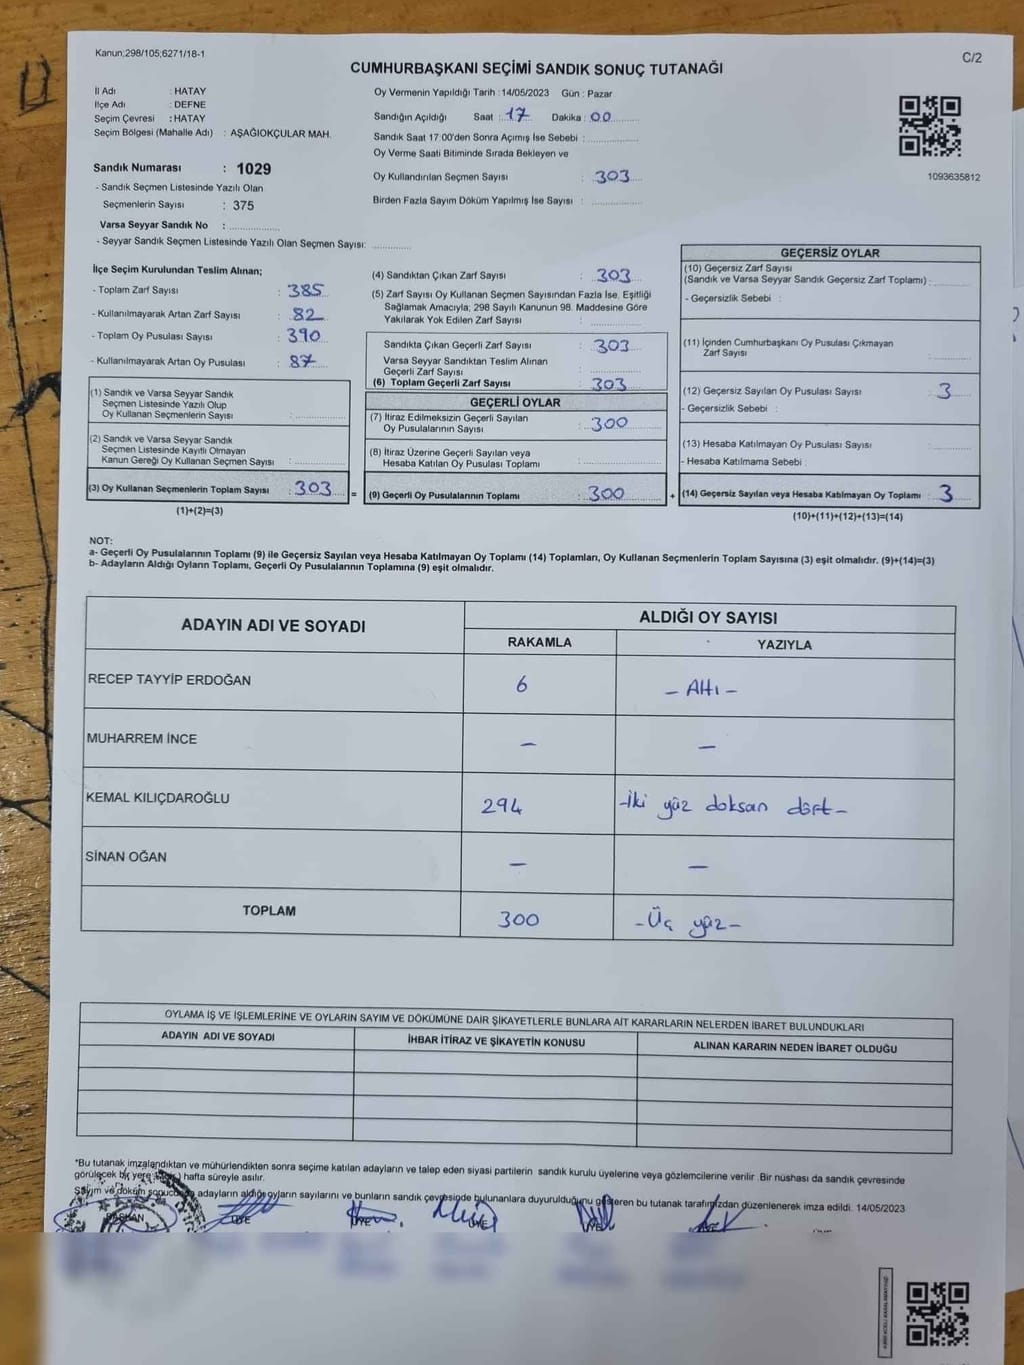 Kanun;298/105;6271/18-1
C/2
CUMHURBAŞKANI SEÇİMİ SANDIK SONUÇ TUTANAĞI
İl Adı : HATAY
İlçe Adı : DEFNE
Seçim Çevresi : HATAY
Seçim Bölgesi (Mahalle Adı) : AŞAĞIOKÇULAR MAH.
Sandık Numarası : 1029
- Sandık Seçmen Listesinde Yazılı Olan
Seçmenlerin Sayısı : 375
Varsa Seyyar Sandık No : ................
- Seyyar Sandık Seçmen Listesinde Yazılı Olan Seçmen Sayısı: ............
Oy Vermenin Yapıldığı Tarih : 14/05/2023 Gün : Pazar
Sandığın Açıldığı Saat : 17 Dakika : 00
Sandık Saat 17:00'den Sonra Açımış İse Sebebi : ................
Oy Verme Saati Bitiminde Sırada Bekleyen ve
Oy Kullandırılan Seçmen Sayısı : 303
Birden Fazla Sayım Döküm Yapılmış İse Sayısı : ................
1093635812
İlçe Seçim Kurulundan Teslim Alınan;
- Toplam Zarf Sayısı : 385
- Kullanılmayarak Artan Zarf Sayısı : 82
- Toplam Oy Pusulası Sayısı : 390
- Kullanılmayarak Artan Oy Pusulası : 87
(1) Sandık ve Varsa Seyyar Sandık
Seçmen Listesinde Yazılı Olup
Oy Kullanan Seçmenlerin Sayısı : ................
(2) Sandık ve Varsa Seyyar Sandık
Seçmen Listesinde Kayıtlı Olmayan
Kanun Gereği Oy Kullanan Seçmen Sayısı : ................
(3) Oy Kullanan Seçmenlerin Toplam Sayısı : 303
(1)+(2)=(3)
(4) Sandıktan Çıkan Zarf Sayısı : 303
(5) Zarf Sayısı Oy Kullanan Seçmen Sayısından Fazla İse, Eşitliği
Sağlamak Amacıyla; 298 Sayılı Kanunun 98. Maddesine Göre
Yakılarak Yok Edilen Zarf Sayısı : ................
Sandıkta Çıkan Geçerli Zarf Sayısı : 303
Varsa Seyyar Sandıktan Teslim Alınan
Geçerli Zarf Sayısı : ................
(6) Toplam Geçerli Zarf Sayısı : 303
GEÇERLİ OYLAR
(7) İtiraz Edilmeksizin Geçerli Sayılan
Oy Pusulalarının Sayısı : 300
(8) İtiraz Üzerine Geçerli Sayılan veya
Hesaba Katılan Oy Pusulası Toplamı : ................
= (9) Geçerli Oy Pusulalarının Toplamı : 300
GEÇERSİZ OYLAR
(10) Geçersiz Zarf Sayısı
(Sandık ve Varsa Seyyar Sandık Geçersiz Zarf Toplamı) : ............
- Geçersizlik Sebebi :
(11) İçinden Cumhurbaşkanı Oy Pusulası Çıkmayan
Zarf Sayısı : ............
(12) Geçersiz Sayılan Oy Pusulası Sayısı : 3
- Geçersizlik Sebebi :
(13) Hesaba Katılmayan Oy Pusulası Sayısı : ............
- Hesaba Katılmama Sebebi :
+ (14) Geçersiz Sayılan veya Hesaba Katılmayan Oy Toplamı : 3
(10)+(11)+(12)+(13)=(14)
NOT:
a- Geçerli Oy Pusulalarının Toplamı (9) ile Geçersiz Sayılan veya Hesaba Katılmayan Oy Toplamı (14) Toplamları, Oy Kullanan Seçmenlerin Toplam Sayısına (3) eşit olmalıdır. (9)+(14)=(3)
b- Adayların Aldığı Oyların Toplamı, Geçerli Oy Pusulalarının Toplamına (9) eşit olmalıdır.
ADAYIN ADI VE SOYADI
ALDIĞI OY SAYISI
RAKAMLA YAZIYLA
RECEP TAYYİP ERDOĞAN 6 - Altı -
MUHARREM İNCE - -
KEMAL KILIÇDAROĞLU 294 -İki yüz doksan dört-
SİNAN OĞAN - -
TOPLAM 300 -Üç yüz-
OYLAMA İŞ VE İŞLEMLERİNE VE OYLARIN SAYIM VE DÖKÜMÜNE DAİR ŞİKAYETLERLE BUNLARA AİT KARARLARIN NELERDEN İBARET BULUNDUKLARI
ADAYIN ADI VE SOYADI İHBAR İTİRAZ VE ŞİKAYETİN KONUSU ALINAN KARARIN NEDEN İBARET OLDUĞU
*Bu tutanak imzalandıktan ve mühürlendikten sonra seçime katılan adayların ve talep eden siyasi partilerin sandık kurulu üyelerine veya gözlemcilerine verilir. Bir nüshası da sandık çevresinde
görülecek bir yere hafta süreyle asılır.
Sayım ve döküm sonucunda adayların aldığı oyların sayılarını ve bunların sandık çevresinde bulunanlara duyurulduğunu gösteren bu tutanak tarafımızdan düzenlenerek imza edildi. 14/05/2023
BAŞKAN ÜYE ÜYE ÜYE ÜYE ÜYE